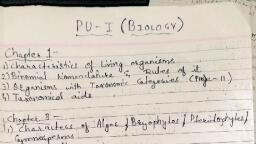 PU-I (BIOLOGY)
Chapter 1-
1) Characteristics of Living organisms
2) Binomial Nomenclature & Rules of it
3) Organisms with Taxonomic Categories (Page-11)
4) Taxonomical aids
Chapter 3-
1) Characters of Algae / Bryophytes / Pteridophytes /
Gymnosperms